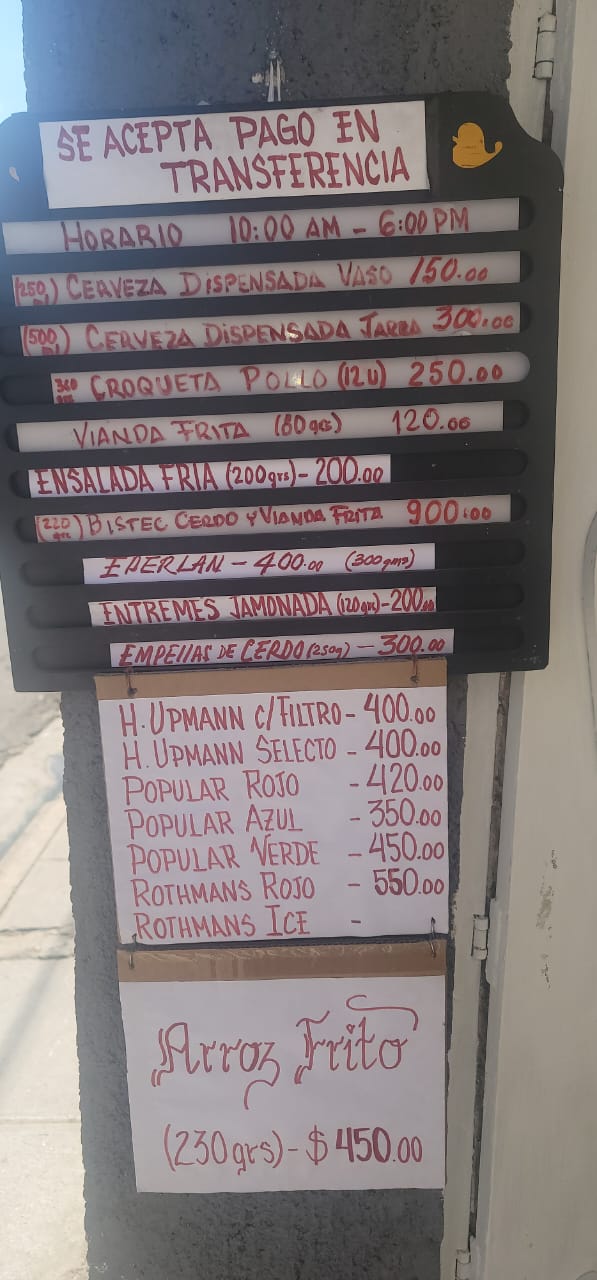 SE ACEPTA PAGO EN
TRANSFERENCIA
HORARIO 10:00 AM - 6:00 PM
(250 ml) CERVEZA DISPENSADA VASO 150.00
(500 ml) CERVEZA DISPENSADA JARRA 300.00
360 grs CROQUETA POLLO (12U) 250.00
VIANDA FRITA (80grs) 120.00
ENSALADA FRIA (200grs) - 200.00
(220 grs) BISTEC CERDO Y VIANDA FRITA 900.00
EPERLAN - 400.00 (300gms)
ENTREMES JAMONADA (120grs) - 200.00
EMPELLAS DE CERDO (250g) - 300.00
H. UPMANN C/FILTRO - 400.00
H. UPMANN SELECTO - 400.00
POPULAR ROJO - 420.00
POPULAR AZUL - 350.00
POPULAR VERDE - 450.00
ROTHMANS ROJO - 550.00
ROTHMANS ICE -
Arroz Frito
(230grs) - $ 450.00